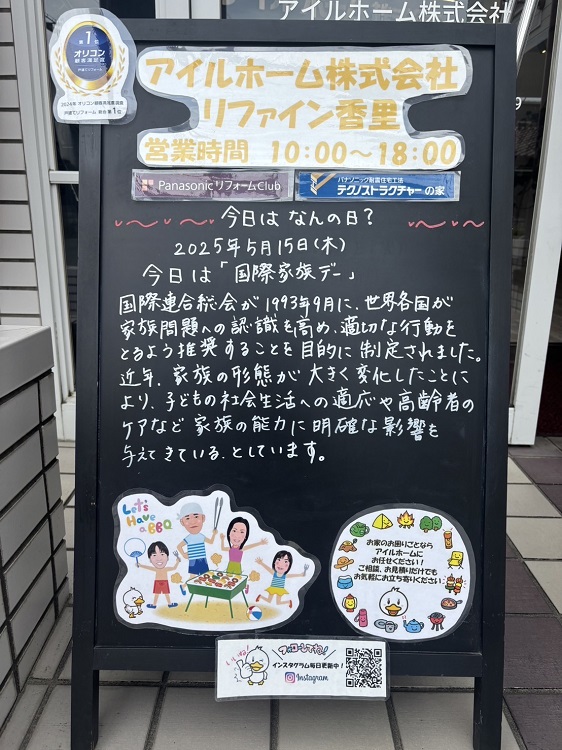 アイルホーム株式会社
第1位
オリコン
顧客満足度
戸建てリフォーム
2024年 オリコン顧客満足度調査
戸建てリフォーム 総合 第1位
アイルホーム株式会社
リファイン香里
営業時間 10:00～18:00
PanasonicリフォームClub
パナソニック耐震住宅工法
テクノストラクチャーの家
今日は なんの日?
2025年5月15日(木)
今日は「国際家族デー」
国際連合総会が1993年9月に、世界各国が
家族問題への認識を高め、適切な行動を
とるよう推奨することを目的に制定されました。
近年、家族の形態が大きく変化したことに
より、子どもの社会生活への適応や高齢者の
ケアなど家族の能力に明確な影響を
与えてきている、としています。
Let's
Have
a
BBQ
お家のお困りごとなら
アイルホームに
お任せください!
ご相談、お見積りだけでも
お気軽にお立ち寄りください
フォローしてね!
いいね!
インスタグラム毎日更新中!
Instagram